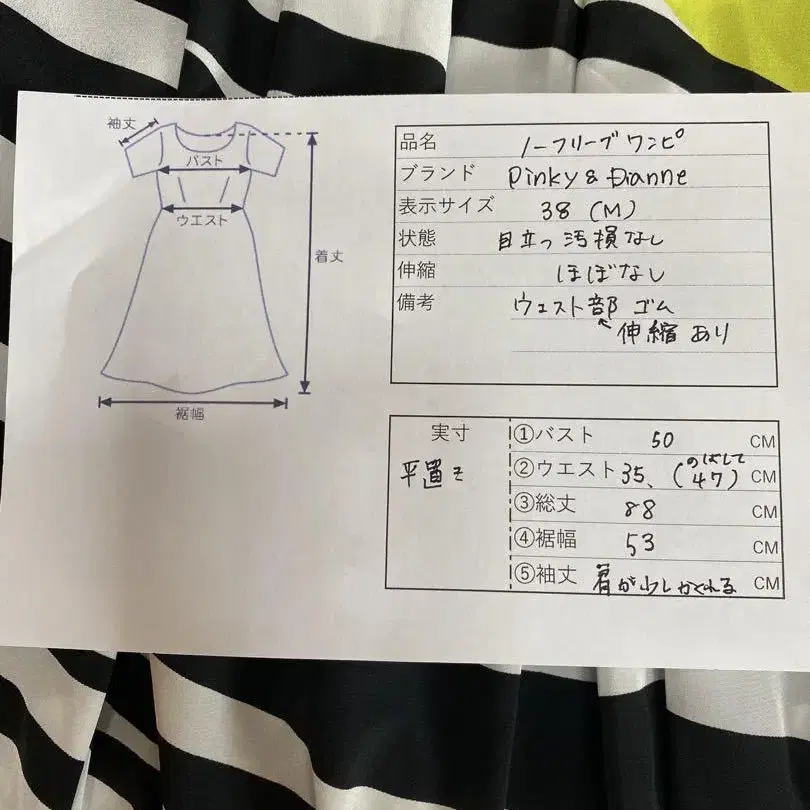 袖丈
バスト
ウエスト
着丈
裾幅
品名 ノーフリーブ ワンピ
ブランド Pinky & Dianne
表示サイズ 38 (M)
状態 目立つ 汚損なし
伸縮 ほぼなし
備考 ウェスト部 ゴム
伸縮 あり
実寸
平置き
①バスト 50 CM
②ウエスト 35、(のばして 47) CM
③総丈 88 CM
④裾幅 53 CM
⑤袖丈 肩が少しかくれる CM